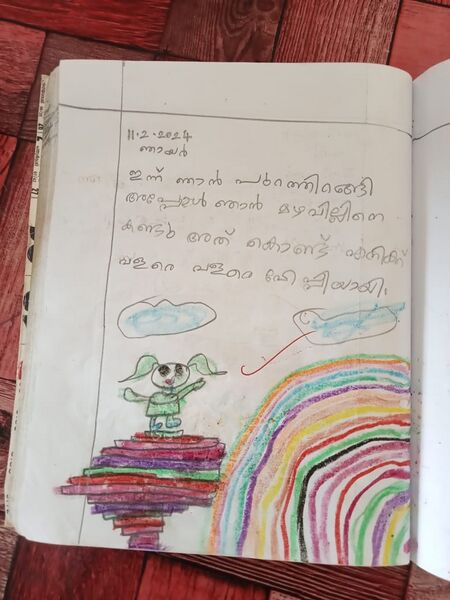 11.2.2024
ഞായർ
ഇന്ന് ഞാൻ പുറത്തിറങ്ങി
അപ്പോൾ ഞാൻ മഴവില്ലിനെ
കണ്ടു അത് കൊണ്ട് എനിക്ക്
വളരെ വളരെ ഹാപ്പിയായി.